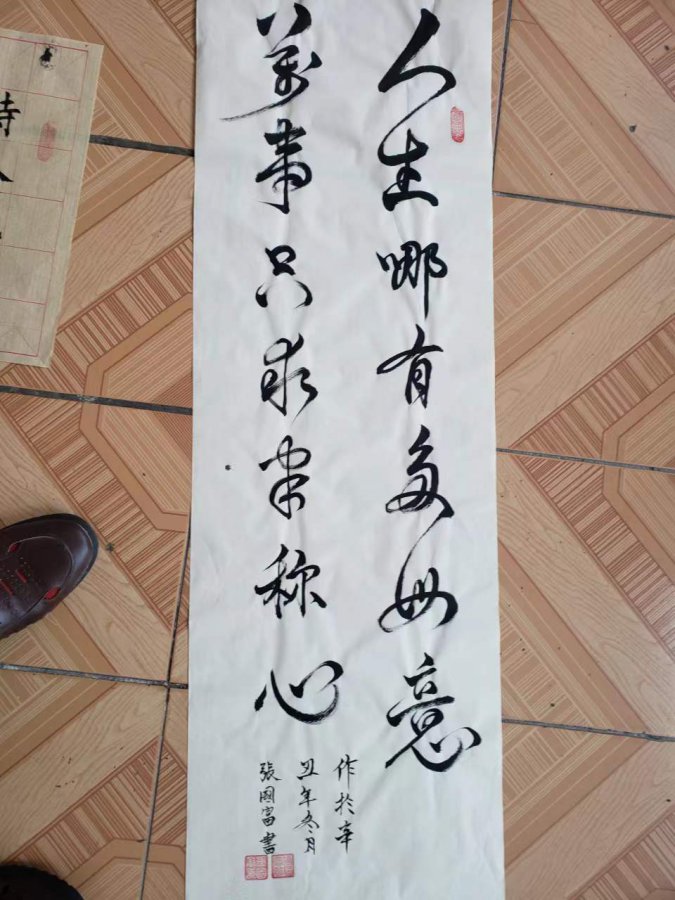 人生哪有多如意
萬事只求半称心
作於辛
丑年冬月
張國富書